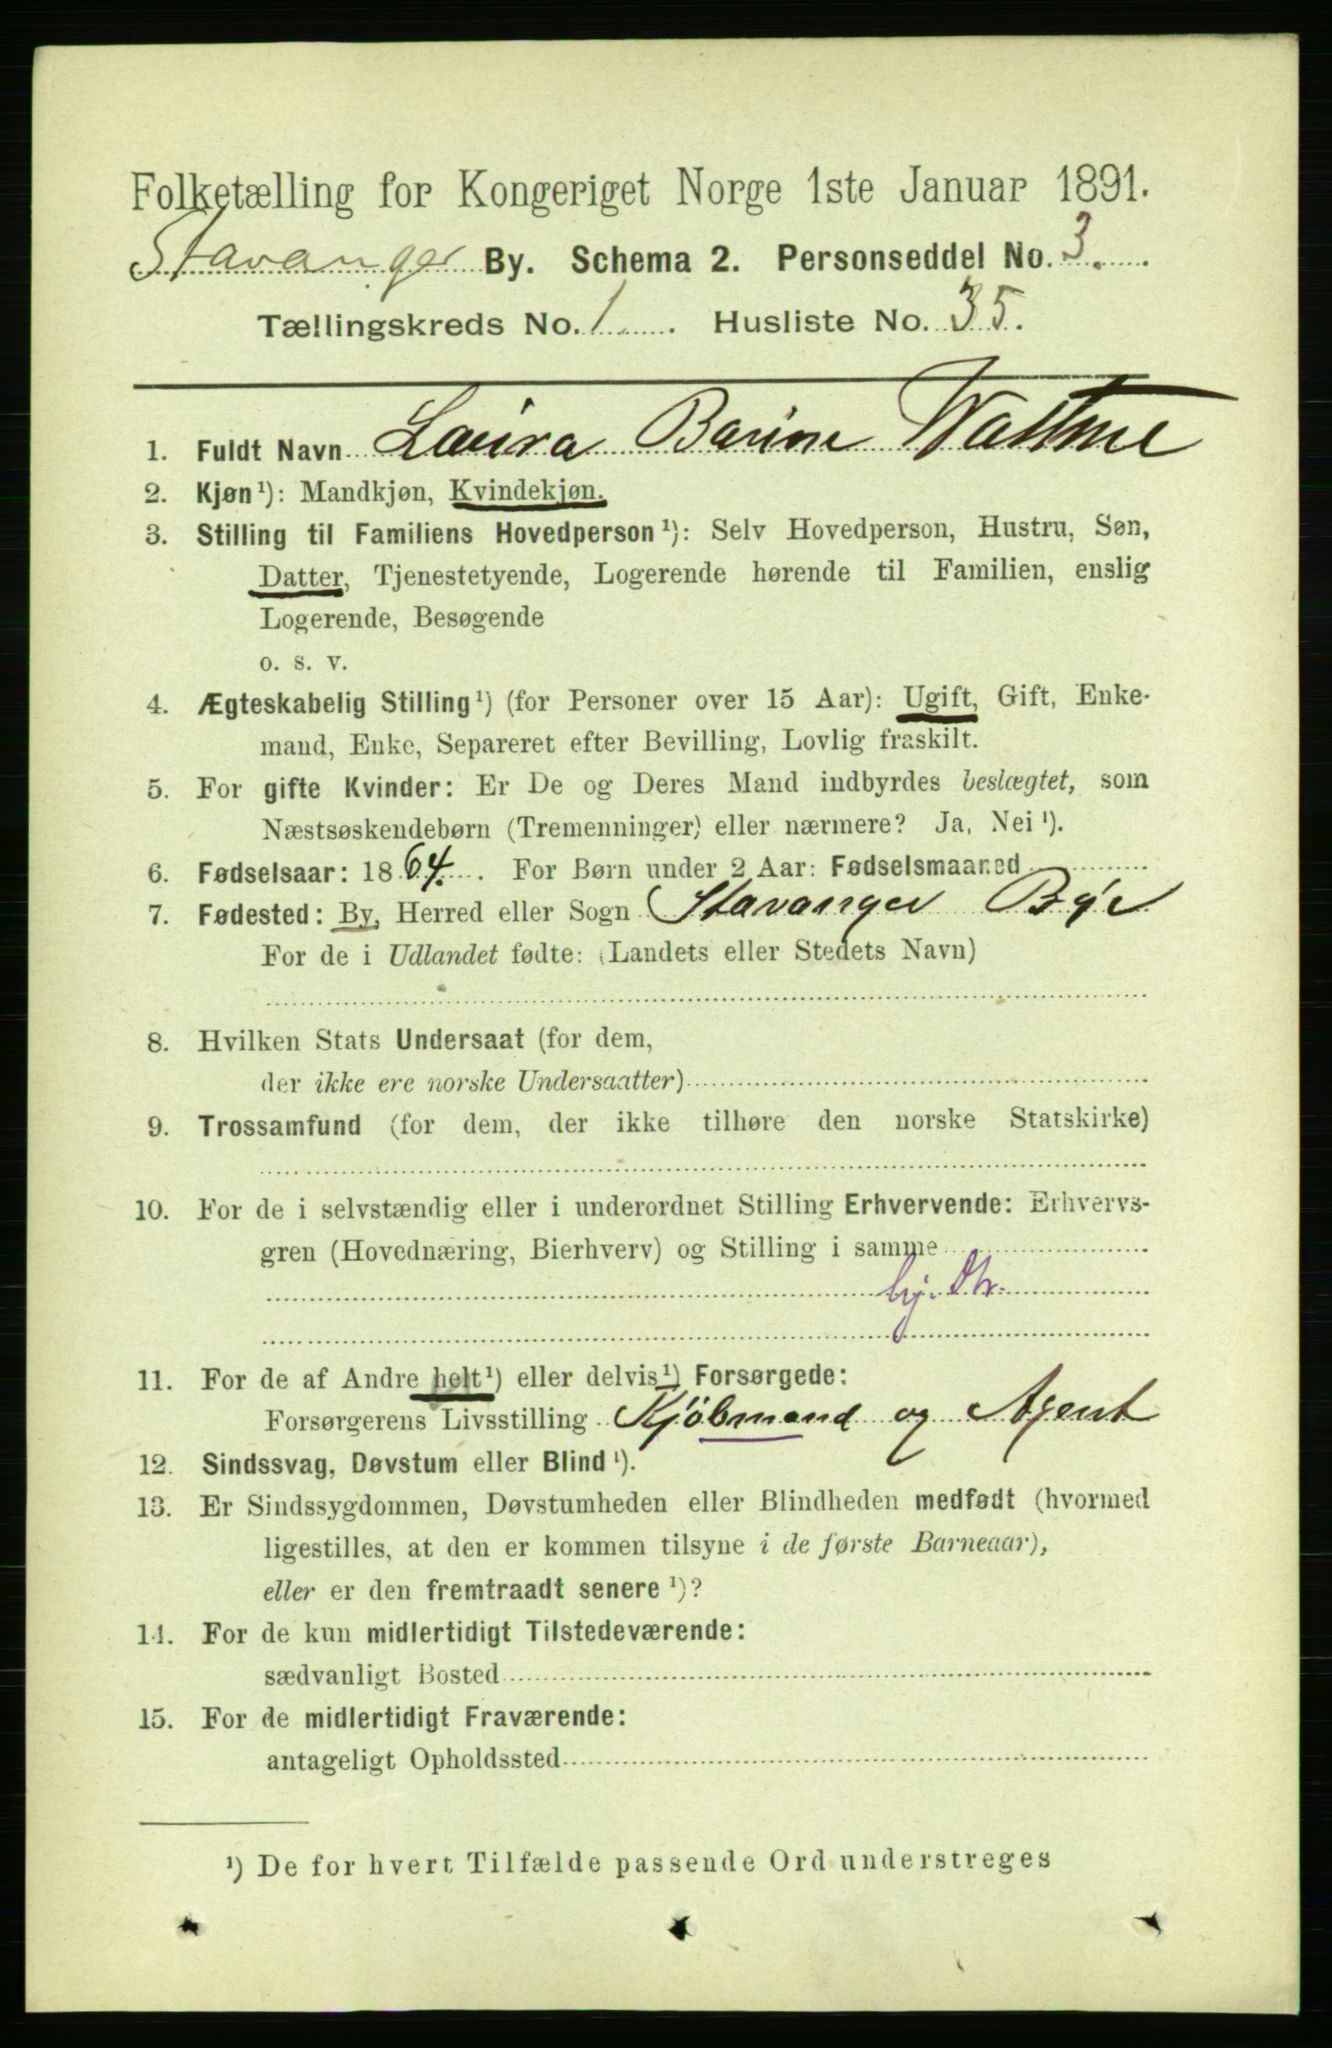 Folketælling for Kongeriget Norge 1ste Januar 1891.
Stavanger By. Schema 2. Personseddel No. 3.
Tællingskreds No. 1. Husliste No. 35.
1. Fuldt Navn Laura Barine Wattne
2. Kjøn¹): Mandkjøn, Kvindekjøn.
3. Stilling til Familiens Hovedperson¹): Selv Hovedperson, Hustru, Søn,
Datter, Tjenestetyende, Logerende hørende til Familien, enslig
Logerende, Besøgende
o. s. v.
4. Ægteskabelig Stilling¹) (for Personer over 15 Aar): Ugift, Gift, Enke-
mand, Enke, Separeret efter Bevilling, Lovlig fraskilt.
5. For gifte Kvinder: Er De og Deres Mand indbyrdes beslægtet, som
Næstsøskendebørn (Tremenninger) eller nærmere? Ja, Nei¹).
6. Fødselsaar: 1864. For Børn under 2 Aar: Fødselsmaaned
7. Fødested: By, Herred eller Sogn Stavanger Bye
For de i Udlandet fødte: (Landets eller Stedets Navn)
8. Hvilken Stats Undersaat (for dem,
der ikke ere norske Undersaatter)
9. Trossamfund (for dem, der ikke tilhøre den norske Statskirke)
10. For de i selvstændig eller i underordnet Stilling Erhvervende: Erhvervs-
gren (Hovednæring, Bierhverv) og Stilling i samme
hj. Dtr.
11. For de af Andre helt¹) eller delvis¹) Forsørgede:
Forsørgerens Livsstilling Kjöbmand og Agent
12. Sindssvag, Døvstum eller Blind¹).
13. Er Sindssygdommen, Døvstumheden eller Blindheden medfødt (hvormed
ligestilles, at den er kommen tilsyne i de første Barneaar),
eller er den fremtraadt senere¹)?
14. For de kun midlertidigt Tilstedeværende:
sædvanligt Bosted
15. For de midlertidigt Fraværende:
antageligt Opholdssted
¹) De for hvert Tilfælde passende Ord understreges